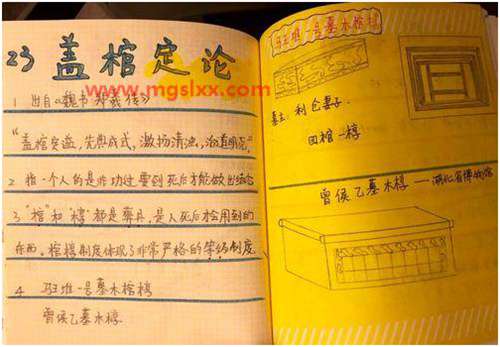 23 盖棺定论
www.mgslxx.com
1 出自《魏书·郑羲传》
"盖棺定谥，先典成式，激扬清浊，治道明范。"
2 指一个人的是非功过要到死后才能做出结论
3 "棺"和"椁"都是葬具，是人死后才会用到的
东西。棺椁制度体现了非常严格的等级制度
4 马王堆一号墓木棺椁
曾侯乙墓木椁
马王堆一号墓木棺椁
墓主：利仓妻子
四棺一椁
曾侯乙墓木椁——湖北省博物馆